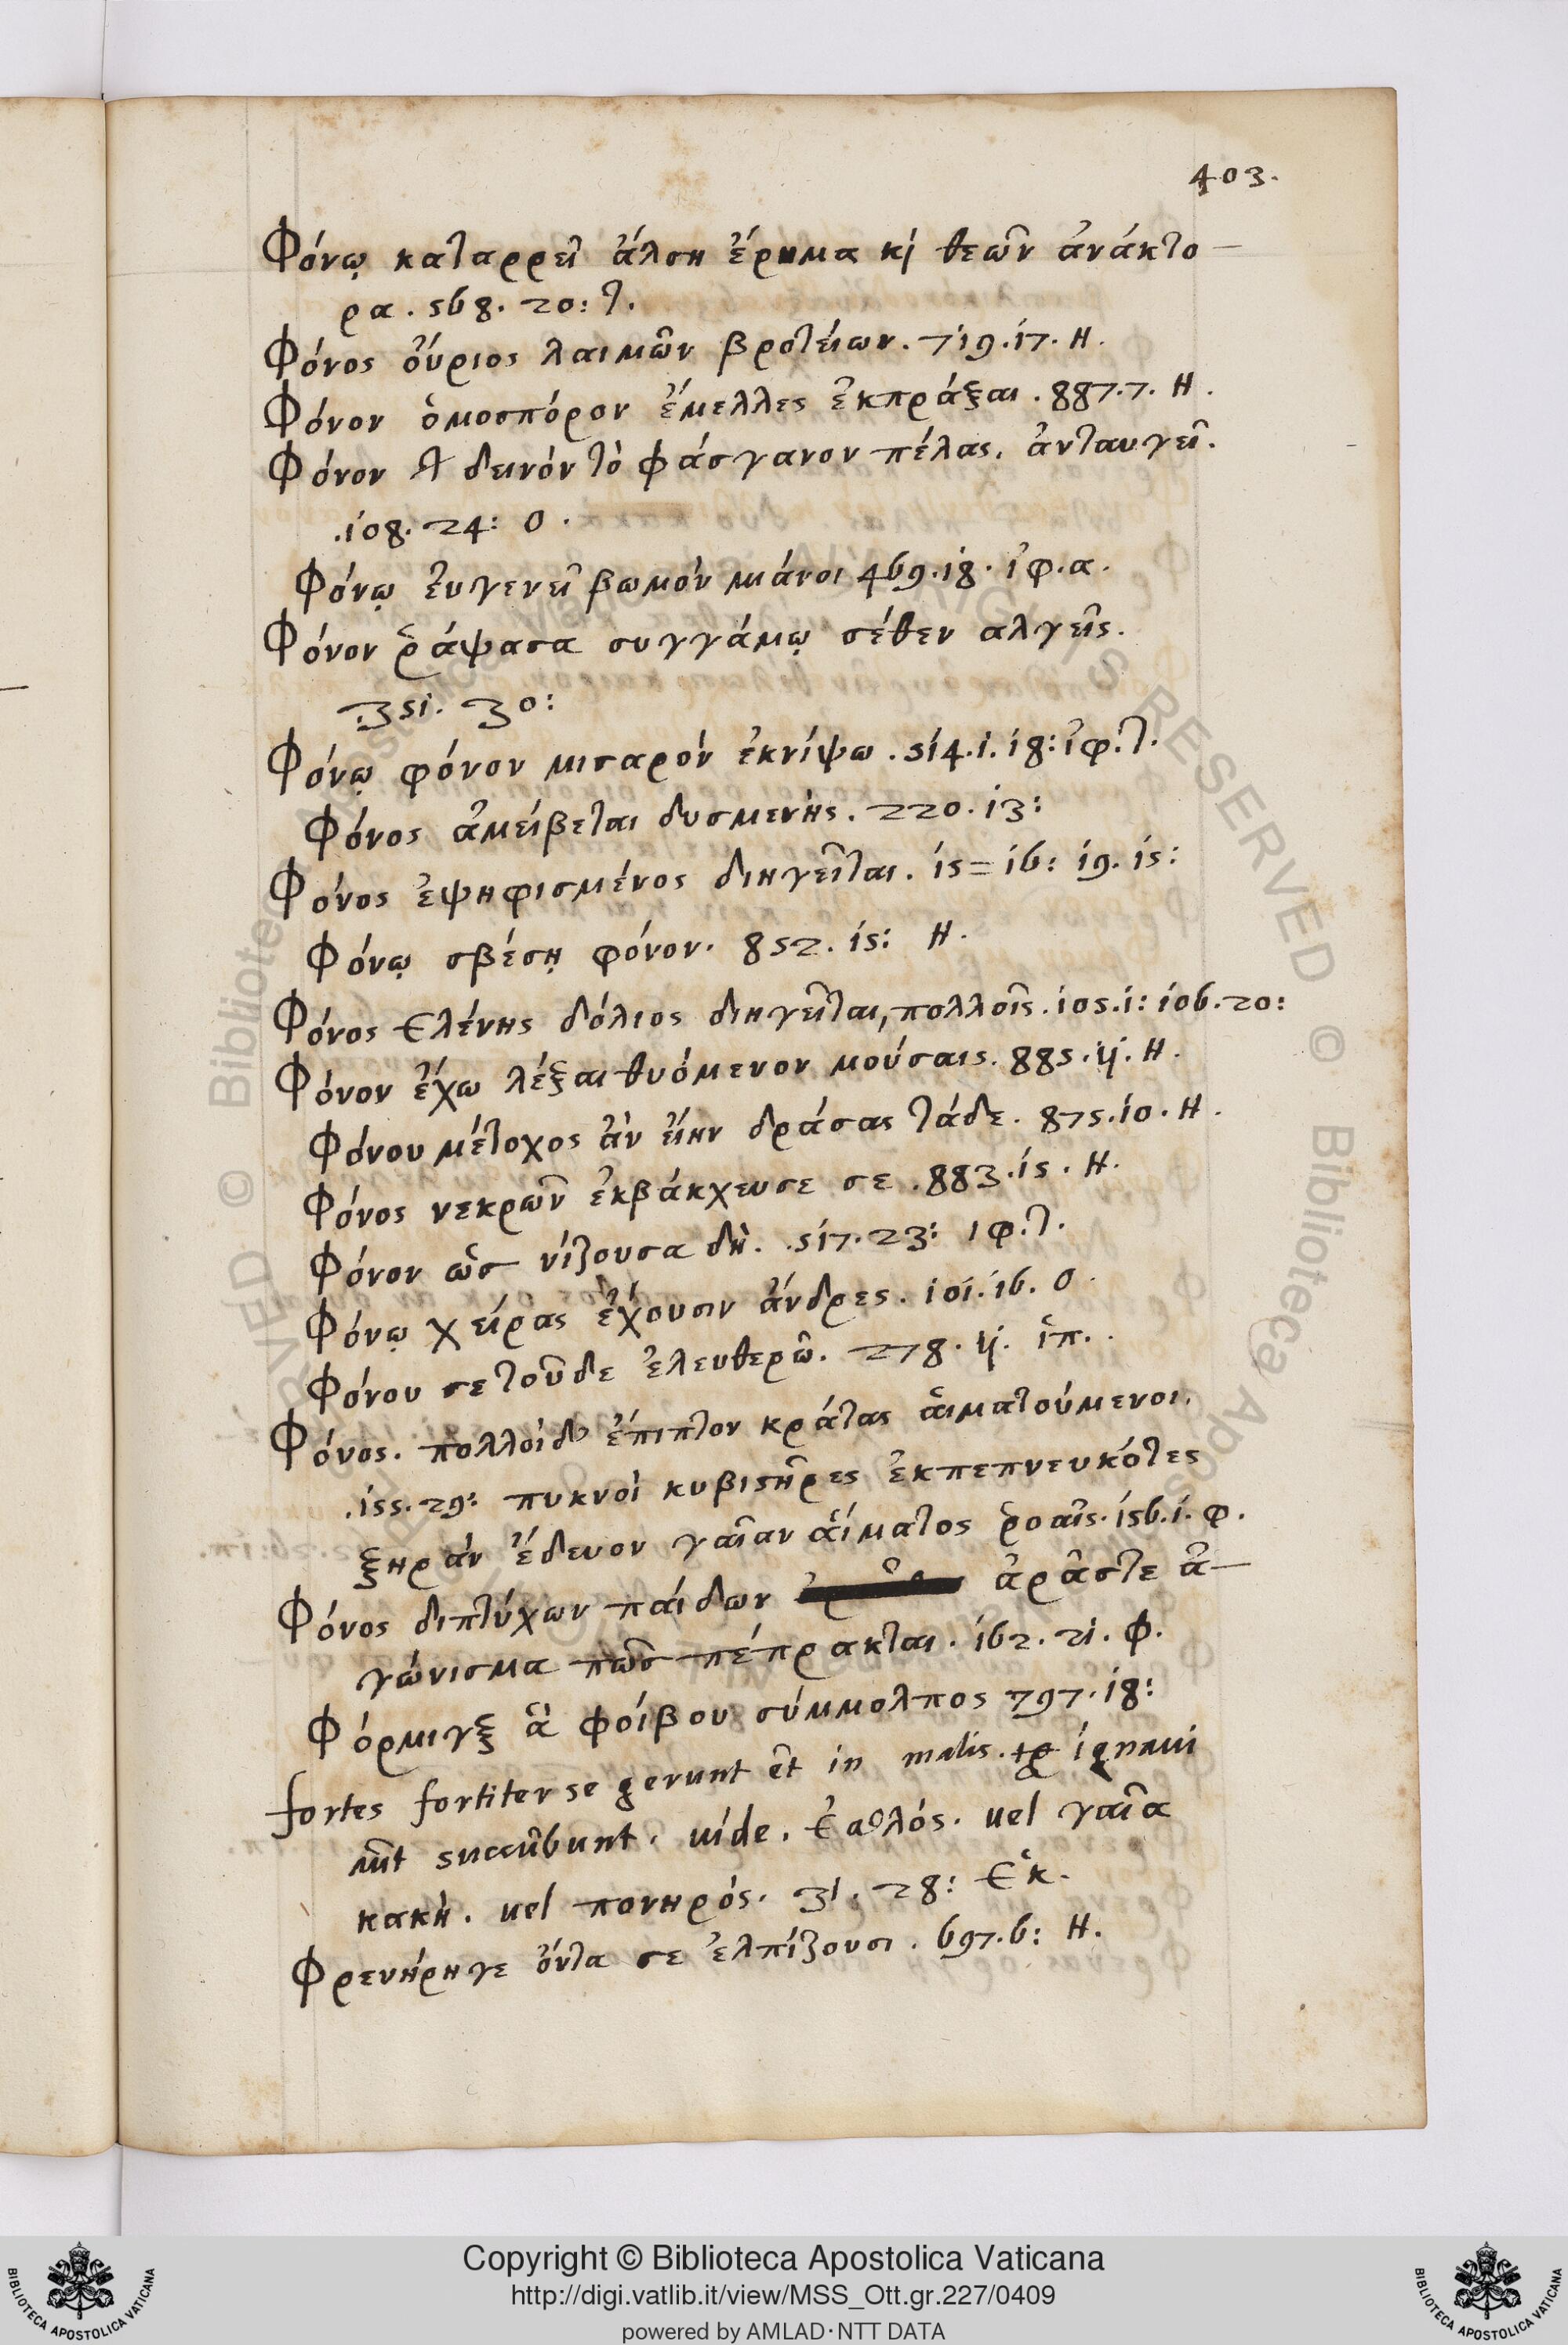 403.
Φόνῳ καταρρεῖ ἄλση ἔρημα κὶ θεῶν ἀνάκτο-
ρα. 568. 20: τ.
Φόνος οὔριος λαιμῶν βροτείων. 719. 17. Η.
Φόνον ὁμοσπόρον ἔμελλες ἐκπράξαι. 887. 7. Η.
Φόνον δεινόν τὸ φάσγανον πέλας. ἀνταυγεῖ.
.108. 24: Ο.
Φόνῳ εὐγενεῖ βωμὸν μιάνοι 469. 18. ἰφ. α.
Φόνον ῥάψασα συγγάμῳ σέθεν αλγεῖς.
.351. 30:
Φόνῳ φόνον μισαρὸν ἐκνίψω. 514. 1. 18: ἰφ. τ.
Φόνος ἀμείβεται δυσμενὴς. 220. 13:
Φόνος ἐψηφισμένος διηγεῖται. 15 = 16: 19. 15:
Φόνῳ σβέσῃ φόνον. 852. 15: Η.
Φόνος Ελένης δόλιος διηγεῖται, πολλοῖς. 105. 1: 106. 20:
Φόνον ἔχω λέξαι θυόμενον μούσαις. 885. 11. Η.
Φόνου μέτοχος ἂν εἴην δράσας τάδε. 875. 10. Η.
Φόνος νεκρῶν ἐκβάκχευσε σε. 883. 15. Η.
Φόνον ὣς νίζουσα δὴ. .517. 23: ιφ. τ.
Φόνῳ χείρας ἔχουσιν ἄνδρες. 101. 16. Ο.
Φόνου σε τοῦδε ἐλευθερῶ. 278. 11. ἱπ.
Φόνος. πολλοὶ δ' ἔπιπτον κράτας αἱματούμενοι.
.155. 29: πυκνοὶ κυβιστῆρες ἐκπεπνευκότες
ξηρὰν ἔδευον γαῖαν αἵματος ῥοαῖς. 156. 1. φ.
Φόνος διπτύχων παίδων ἀρᾶστε ἀ-
γώνισμα πῶς πέπρακται. 162. 21. φ.
Φόρμιγξ ἁ φοίβου σύμμολπος 797. 18:
fortes fortiter se gerunt et in malis. ignaui
aut succumbunt. uide. Ἐσθλός. uel γαῖα
κακὴ. uel πονηρός. 31. 28: Ἑκ.
Φρενήρη γε ὄντα σε ἐλπίζουσι. 697. 6: Η.
Copyright © Biblioteca Apostolica Vaticana
http://digi.vatlib.it/view/MSS_Ott.gr.227/0409
powered by AMLAD·NTT DATA
BIBLIOTECA APOSTOLICA VATICANA
BIBLIOTECA APOSTOLICA VATICANA